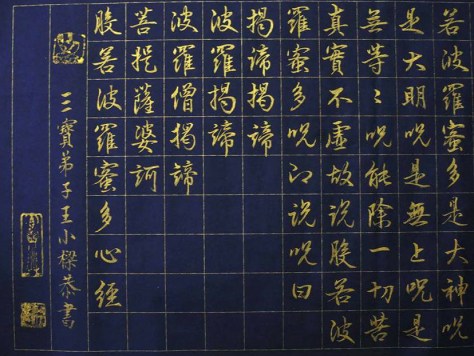 若波羅蜜多是大神呪
是大明呪是無上呪是
無等〻呪能除一切苦
真實不虛故說般若波
羅蜜多呪即說呪曰
揭諦揭諦
波羅揭諦
波羅僧揭諦
菩提薩婆訶
般若波羅蜜多心經
三寶弟子王小樑恭書